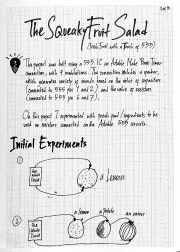 The Squeaky Fruit Salad
This project was built using a 555 IC an Astable Mode Timer
connections with 4 modulations. The connection includes a speaker,
which generates variety of sounds based on the value of capacitors
(connected to 555 pin 1 and 2) and the value of resistors
(connected to 555 pin 6 and 7).
On this project I experimented with foods and / ingredients to be
used as resistors connected on the Astable 555 circuits.
Initial Experiments
a lemon
a lemon a Potato an onion